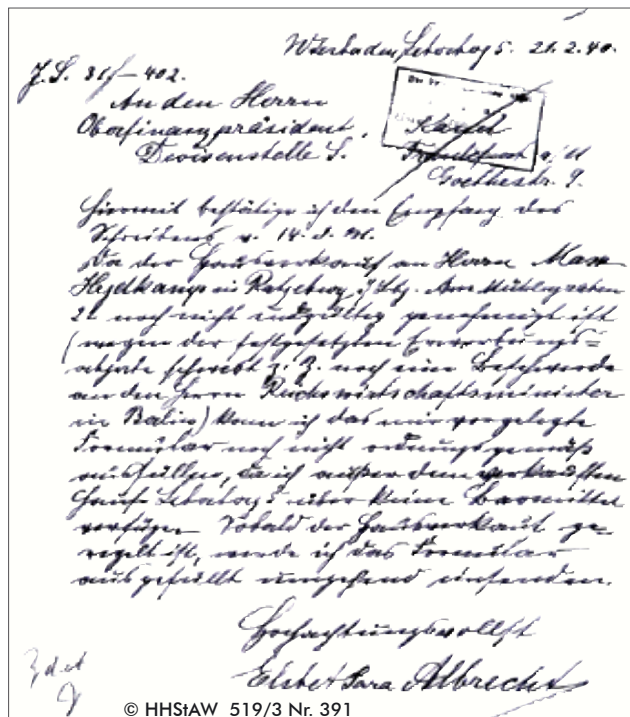 Wiesbaden, 5. 21.2.40.
J.S. 31/-402.
An den Herrn
Oberfinanzpräsident, Kassel
Devisenstelle S. Frankfurt a/M
Goethestr. 9.
Hiermit bestätige ich den Empfang des
Schreibens v. 14. d. M.
Da der Hausverkauf an Herrn Max
Heydkamp in Ratzeburg i/Lbg. Am Mühlengraben
2 noch nicht endgültig genehmigt ist
(wegen der festgesetzten Entwertungs=
abgabe schwebt z. Z. noch eine Beschwerde
an den Herrn Reichswirtschaftsminister
in Berlin) kann ich das mir vorgelegte
Formular noch nicht ordnungsgemäß
ausfüllen, da ich außer dem verkauften
Haus über keine Barmittel
verfüge. Sobald der Hausverkauf ge=
regelt ist, werde ich das Formular
ausgefüllt umgehend einsenden.
Hochachtungsvollst
Sara Albrecht
z d A
© HHStAW 519/3 Nr. 391